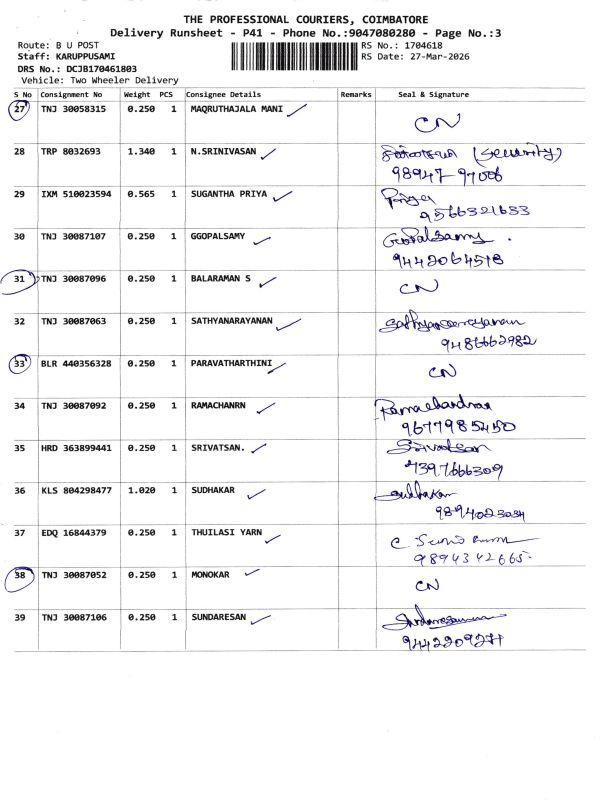 THE PROFESSIONAL COURIERS, COIMBATORE
Delivery Runsheet - P41 - Phone No.:9047080280 - Page No.:3
Route: B U POST
RS No.: 1704618
Staff: KARUPPUSAMI
RS Date: 27-Mar-2026
DRS No.: DCJB170461803
Vehicle: Two Wheeler Delivery
S No Consignment No Weight PCS Consignee Details Remarks Seal & Signature
27 TNJ 30058315 0.250 1 MAQRUTHAJALA MANI CN
28 TRP 8032693 1.340 1 N.SRINIVASAN (Security)
98947-97006
29 IXM 510023594 0.565 1 SUGANTHA PRIYA Priya
9566321633
30 TNJ 30087107 0.250 1 GGOPALSAMY Gopalsamy
9442064518
31 TNJ 30087096 0.250 1 BALARAMAN S CN
32 TNJ 30087063 0.250 1 SATHYANARAYANAN Sathyanarayanan
9486662982
33 BLR 440356328 0.250 1 PARAVATHARTHINI CN
34 TNJ 30087092 0.250 1 RAMACHANRN Ramachandran
9677985450
35 HRD 363899441 0.250 1 SRIVATSAN. Srivatsan
7397666309
36 KLS 804298477 1.020 1 SUDHAKAR Sudhakar
9894023034
37 EDQ 16844379 0.250 1 THUILASI YARN
9894342665
38 TNJ 30087052 0.250 1 MONOKAR CN
39 TNJ 30087106 0.250 1 SUNDARESAN
9442209271